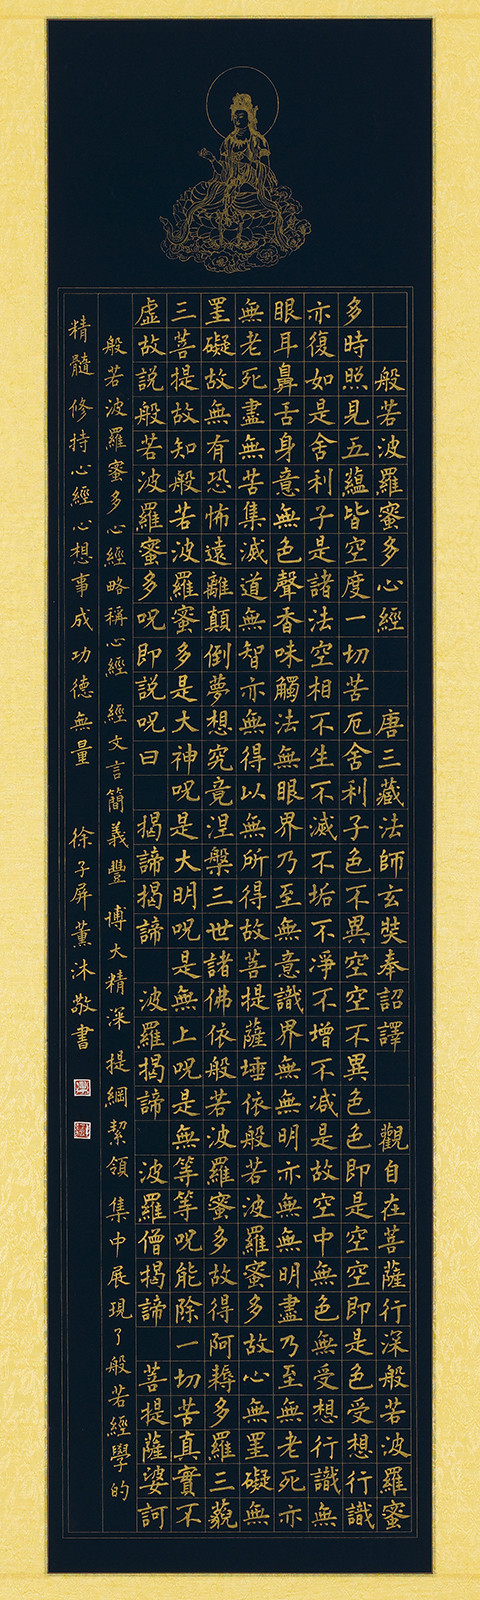 般若波羅蜜多心經 唐三藏法師玄奘奉詔譯 觀自在菩薩行深般若波羅蜜
多時照見五蘊皆空度一切苦厄舍利子色不異空空不異色色即是空空即是色受想行識
亦復如是舍利子是諸法空相不生不滅不垢不淨不增不減是故空中無色無受想行識無
眼耳鼻舌身意無色聲香味觸法無眼界乃至無意識界無無明亦無無明盡乃至無老死亦
無老死盡無苦集滅道無智亦無得以無所得故菩提薩埵依般若波羅蜜多故心無罣礙無
罣礙故無有恐怖遠離顛倒夢想究竟涅槃三世諸佛依般若波羅蜜多故得阿耨多羅三藐
三菩提故知般若波羅蜜多是大神呪是大明呪是無上呪是無等等呪能除一切苦真實不
虛故説般若波羅蜜多呪即説呪曰 揭諦揭諦 波羅揭諦 波羅僧揭諦 菩提薩婆訶
般若波羅蜜多心經略稱心經 經文言簡義豐 博大精深 提綱絜領 集中展現了般若經學的
精髓 修持心經心想事成功德無量 徐子屏薰沐敬書